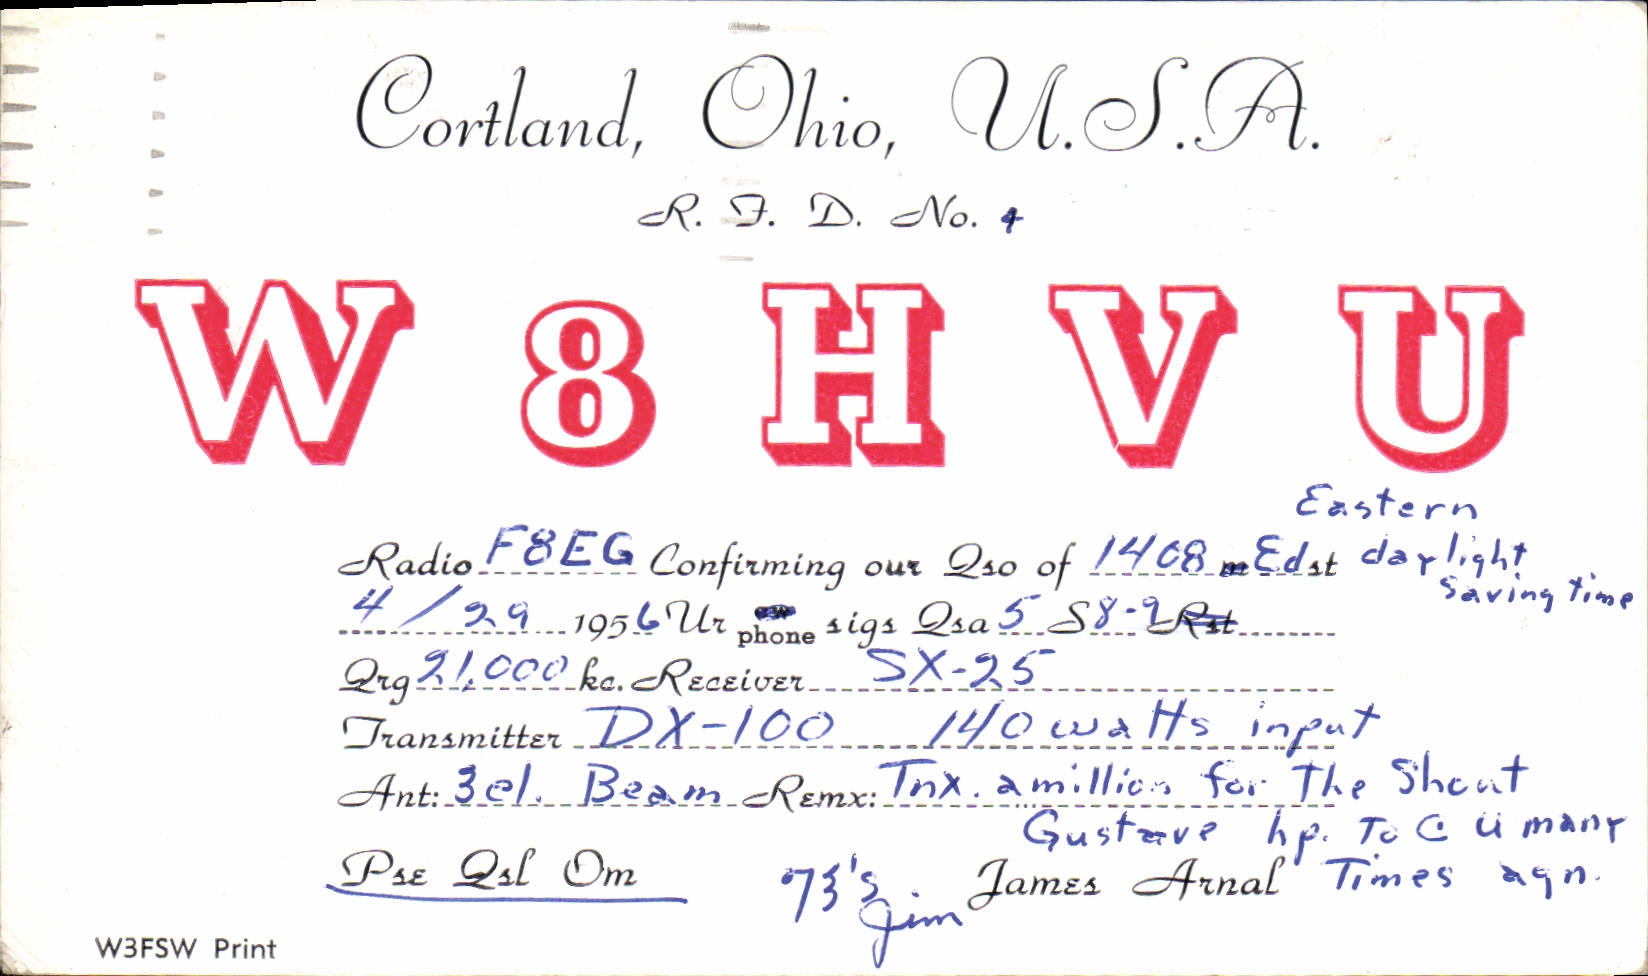 Cortland, Ohio, U.S.A.
R. F. D. No. 4
W 8 H V U
Eastern
Radio F8EG Confirming our Qso of 1408 Edst daylight
saving time
4/29 1956 Ur phone sigs Qsa 5 S 8-9 Rst
Qrg 21,000 kc. Receiver SX-25
Transmitter DX-100 140 watts input
Ant: 3el. Beam Remx: Tnx. a million for The Shout
Gustave hp. To C U many
Pse Qsl Om 73's Jim James Arnal Times agn.
W3FSW Print